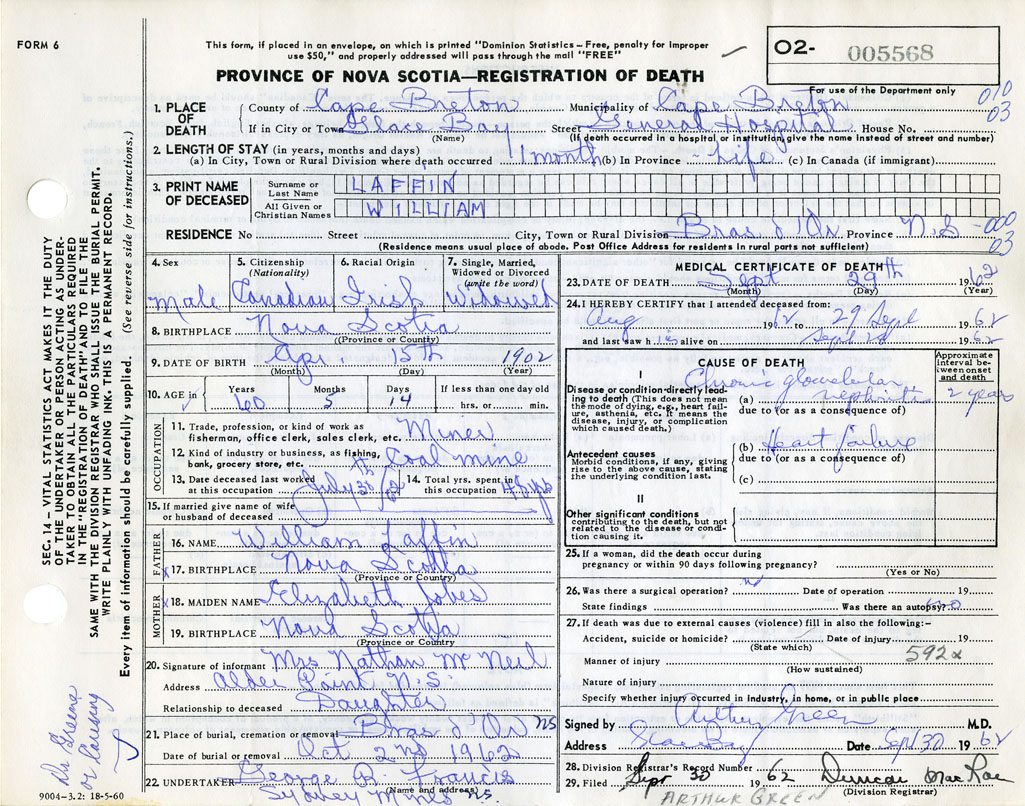 FORM 6
This form, if placed in an envelope, on which is printed "Dominion Statistics–Free, penalty for improper
use $50," and properly addressed will pass through the mail "FREE"
O2- 005568
PROVINCE OF NOVA SCOTIA—REGISTRATION OF DEATH
For use of the Department only
010
03
1. PLACE OF DEATH
County of Cape Breton Municipality of Cape Breton
If in City or Town Glace Bay Street General Hospital House No.
(Name) (If death occurred in a hospital or institution, give the name instead of street and number)
2. LENGTH OF STAY (in years, months and days)
(a) In City, Town or Rural Division where death occurred 1 month (b) In Province - Life (c) In Canada (if immigrant)
3. PRINT NAME OF DECEASED
Surname or Last Name LAFFIN
All Given or Christian Names WILLIAM
RESIDENCE No Street City, Town or Rural Division Bras d'Or Province N.S
-000
03
(Residence means usual place of abode. Post Office Address for residents in rural parts not sufficient)
4. Sex 5. Citizenship (Nationality) 6. Racial Origin 7. Single, Married, Widowed or Divorced (write the word)
Male Canadian Irish Widowed
8. BIRTHPLACE Nova Scotia
(Province or County)
9. DATE OF BIRTH Apr. 15th 1902
(Month) (Day) (Year)
10. AGE in Years 60 Months 5 Days 14 If less than one day old
hrs. or min.
OCCUPATION
11. Trade, profession, or kind of work as
fisherman, office clerk, sales clerk, etc. Miner
12. Kind of industry or business, as fishing,
bank, grocery store, etc. Coal mine
13. Date deceased last worked
at this occupation July 30th/62
14. Total yrs. spent in
this occupation 45 yrs
15. If married give name of wife
or husband of deceased
FATHER
16. NAME William Laffin
x 17. BIRTHPLACE Nova Scotia
(Province or Country)
MOTHER
x 18. MAIDEN NAME Elizabeth
19. BIRTHPLACE Nova Scotia
(Province or Country)
20. Signature of informant Mrs Nathan McNeil
Address Alder Point N.S.
Relationship to deceased Daughter
21. Place of burial, cremation or removal Bras d'Or NS
Date of burial or removal Oct 2nd 1962
22. UNDERTAKER George R. Francis
(Name and address)
Sydney Mines NS.
MEDICAL CERTIFICATE OF DEATH
23. DATE OF DEATH Sept 29th 1962
(Month) (Day) (Year)
24. I HEREBY CERTIFY that I attended deceased from:
Aug 1962 to 29 Sept 1962
and last saw him alive on Sept 28 1962
CAUSE OF DEATH
Approximate interval between onset and death
I
Disease or condition directly lead-
ing to death (This does not mean
the mode of dying, e.g., heart fail-
ure, asthenia, etc. It means the
disease, injury, or complication
which caused death.)
(a) Chronic nephritis 2 years
due to (or as a consequence of)
Antecedent causes
Morbid conditions, if any, giving
rise to the above cause, stating
the underlying condition last.
(b) Heart failure
due to (or as a consequence of)
(c)
II
Other significant conditions
contributing to the death, but not
related to the disease or condi-
tion causing it.
25. If a woman, did the death occur during
pregnancy or within 90 days following pregnancy?
(Yes or No)
26. Was there a surgical operation? no Date of operation 19
State findings Was there an autopsy? no
27. If death was due to external causes (violence) fill in also the following:–
Accident, suicide or homicide? Date of injury 19
(State which)
592x
Manner of injury
(How sustained)
Nature of injury
Specify whether injury occurred in industry, in home, or in public place
Signed by Arthur Green M.D.
Address Glace Bay Date Sept 30 1962
28. Division Registrar's Record Number
29. Filed Sept 30 1962 Duncan MacRae
(Division Registrar)
ARTHUR GREEN
SEC. 14 – VITAL STATISTICS ACT MAKES IT THE DUTY
OF THE UNDERTAKER OR PERSON ACTING AS UNDER-
TAKER TO OBTAIN ALL THE PARTICULARS REQUIRED
IN THE "REGISTRATION OF DEATH" AND TO FILE THE
SAME WITH THE DIVISION REGISTRAR WHO SHALL ISSUE THE BURIAL PERMIT.
WRITE PLAINLY WITH UNFADING INK. THIS IS A PERMANENT RECORD.
Every item of information should be carefully supplied. (See reverse side for instructions.)
Dr Greene
or
9004–3.2: 18-5-60